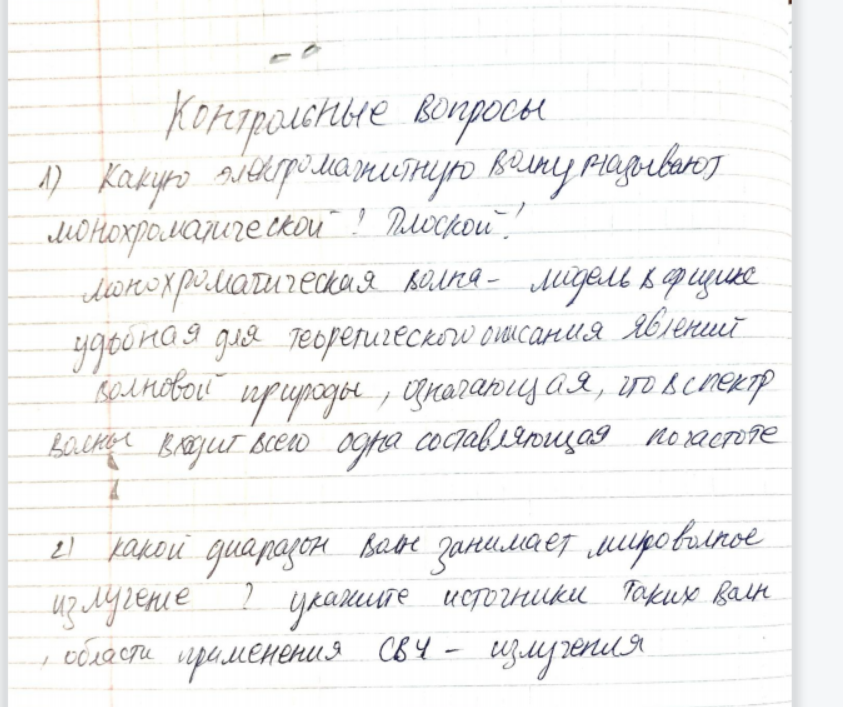 Контрольные вопросы
1) Какую электромагнитную волну называют
монохроматической? Плоской?
монохроматическая волна - модель в физике
удобная для теоретического описания явлений
волновой природы, означающая, что в спектр
волны входит всего одна составляющая по частоте
2) какой диапазон волн занимает микроволное
излучение ? укажите источники таких волн
, области применения СВЧ - излучения